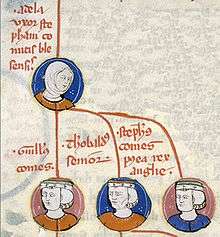 ·adela
vxor ste
phani co
mitis ble
sensis·
Guill's
comes·
Thobald'
senior·
steph's
comes
p'ea rex
anglie·